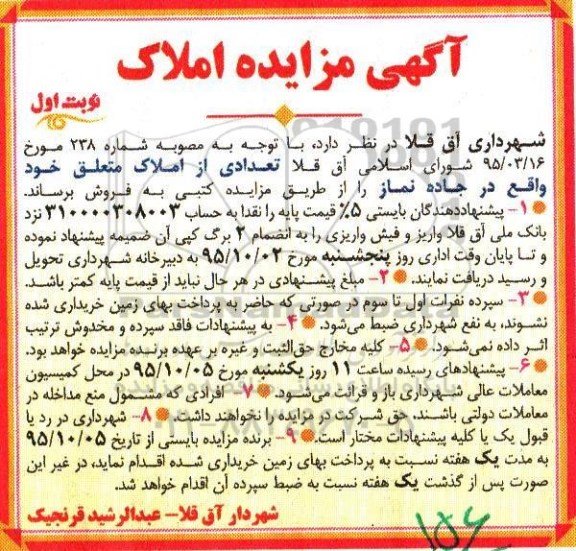 آگهی مزایده املاک
نوبت اول
شهرداری آق قلا در نظر دارد، با توجه به مصوبه شماره ۲۳۸ مورخ
۹۵/۰۳/۱۶ شورای اسلامی آق قلا تعدادی از املاک متعلق خود
واقع در جاده نماز را از طریق مزایده کتبی به فروش برساند.
۱- پیشنهاددهندگان بایستی ۵٪ قیمت پایه را نقدا به حساب ۳۱۰۰۰۰۳۰۸۰۰۳ نزد
بانک ملی آق قلا واریز و فیش واریزی را به انضمام ۲ برگ کپی آن ضمیمه پیشنهاد نموده
و تا پایان وقت اداری روز پنجشنبه مورخ ۹۵/۱۰/۰۲ به دبیرخانه شهرداری تحویل
و رسید دریافت نمایند. ۲- مبلغ پیشنهادی در هر حال نباید از قیمت پایه کمتر باشد.
۳- سپرده نفرات اول تا سوم در صورتی که حاضر به پرداخت بهای زمین خریداری شده
نشوند، به نفع شهرداری ضبط می‌شود. ۴- به پیشنهادات فاقد سپرده و مخدوش ترتیب
اثر داده نمی‌شود. ۵- کلیه مخارج حق‌الثبت و غیره بر عهده برنده مزایده خواهد بود.
۶- پیشنهادهای رسیده ساعت ۱۱ روز یکشنبه مورخ ۹۵/۱۰/۰۵ در محل کمیسیون
معاملات عالی شهرداری باز و قرائت می‌شود. ۷- افرادی که مشمول منع مداخله در
معاملات دولتی باشند، حق شرکت در مزایده را نخواهند داشت. ۸- شهرداری در رد یا
قبول یک یا کلیه پیشنهادات مختار است. ۹- برنده مزایده بایستی از تاریخ ۹۵/۱۰/۰۵
به مدت یک هفته نسبت به پرداخت بهای زمین خریداری شده اقدام نماید، در غیر این
صورت پس از گذشت یک هفته نسبت به ضبط سپرده آن اقدام خواهد شد.
شهردار آق قلا- عبدالرشید قرنجیک
۱۵۶